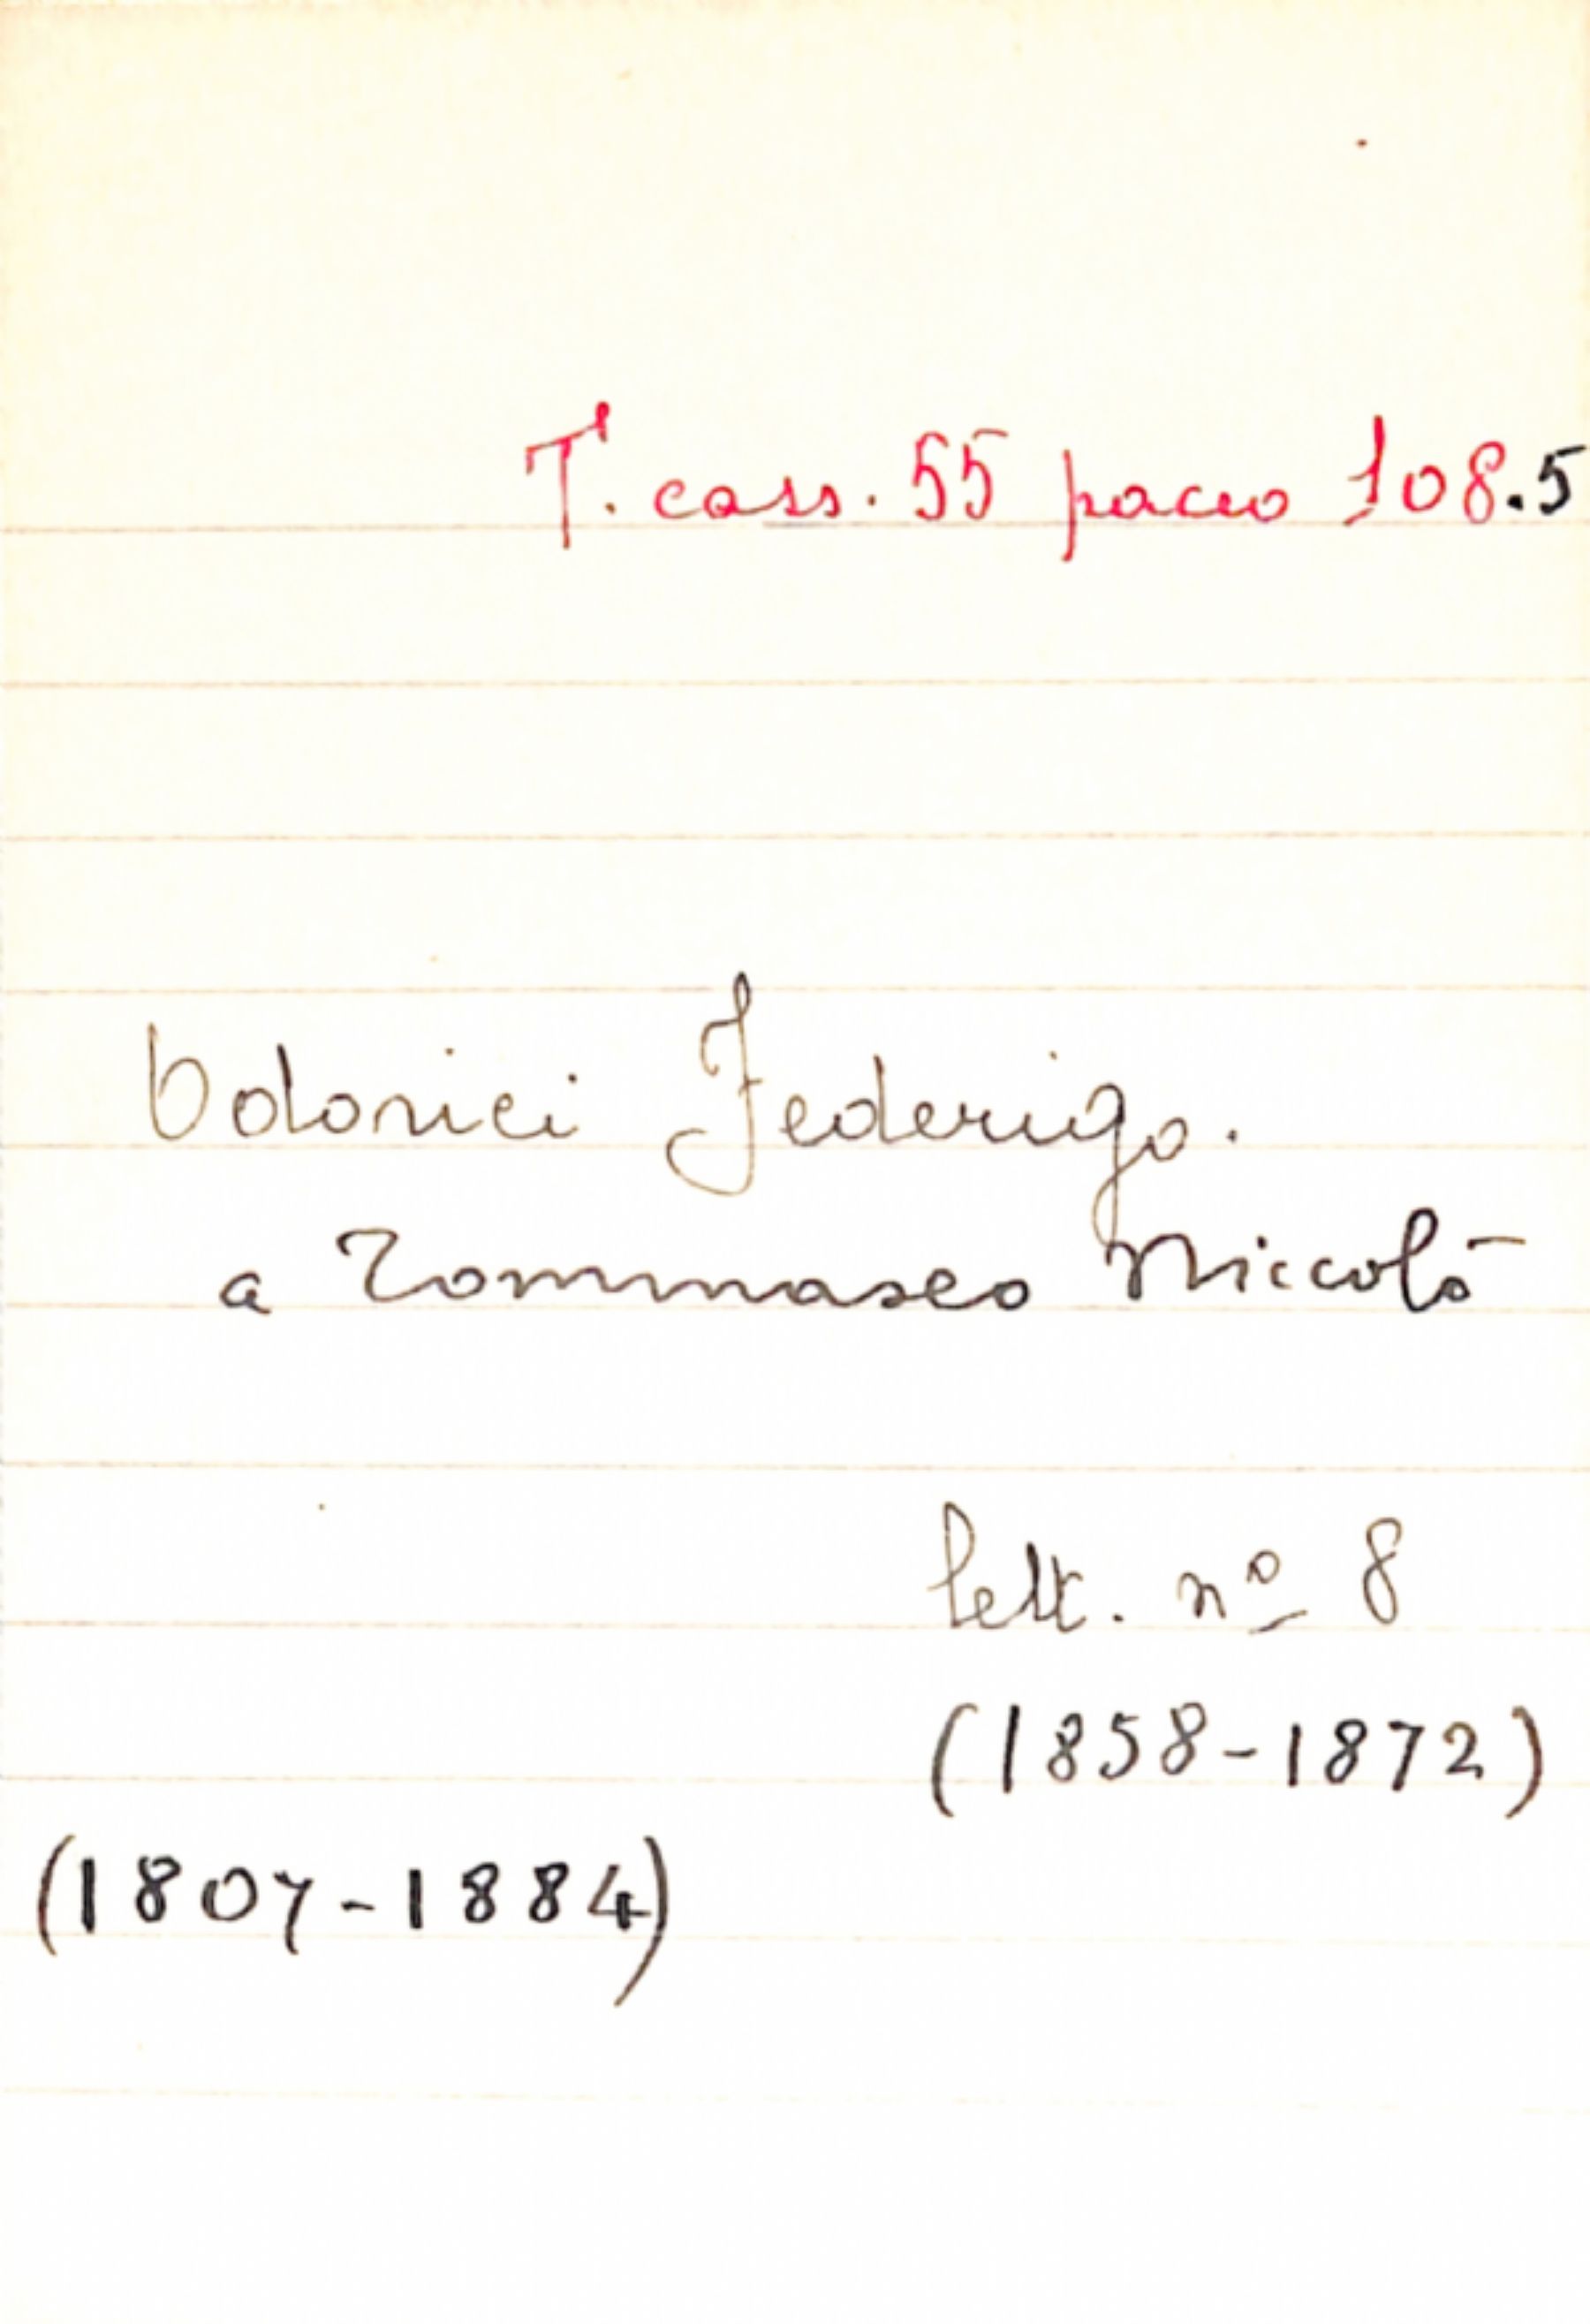 T. cass. 55 pacco 108.5
Odorici Federigo.
a Tommaseo Niccolò
lett. nº 8
(1858-1872)
(1807-1884)